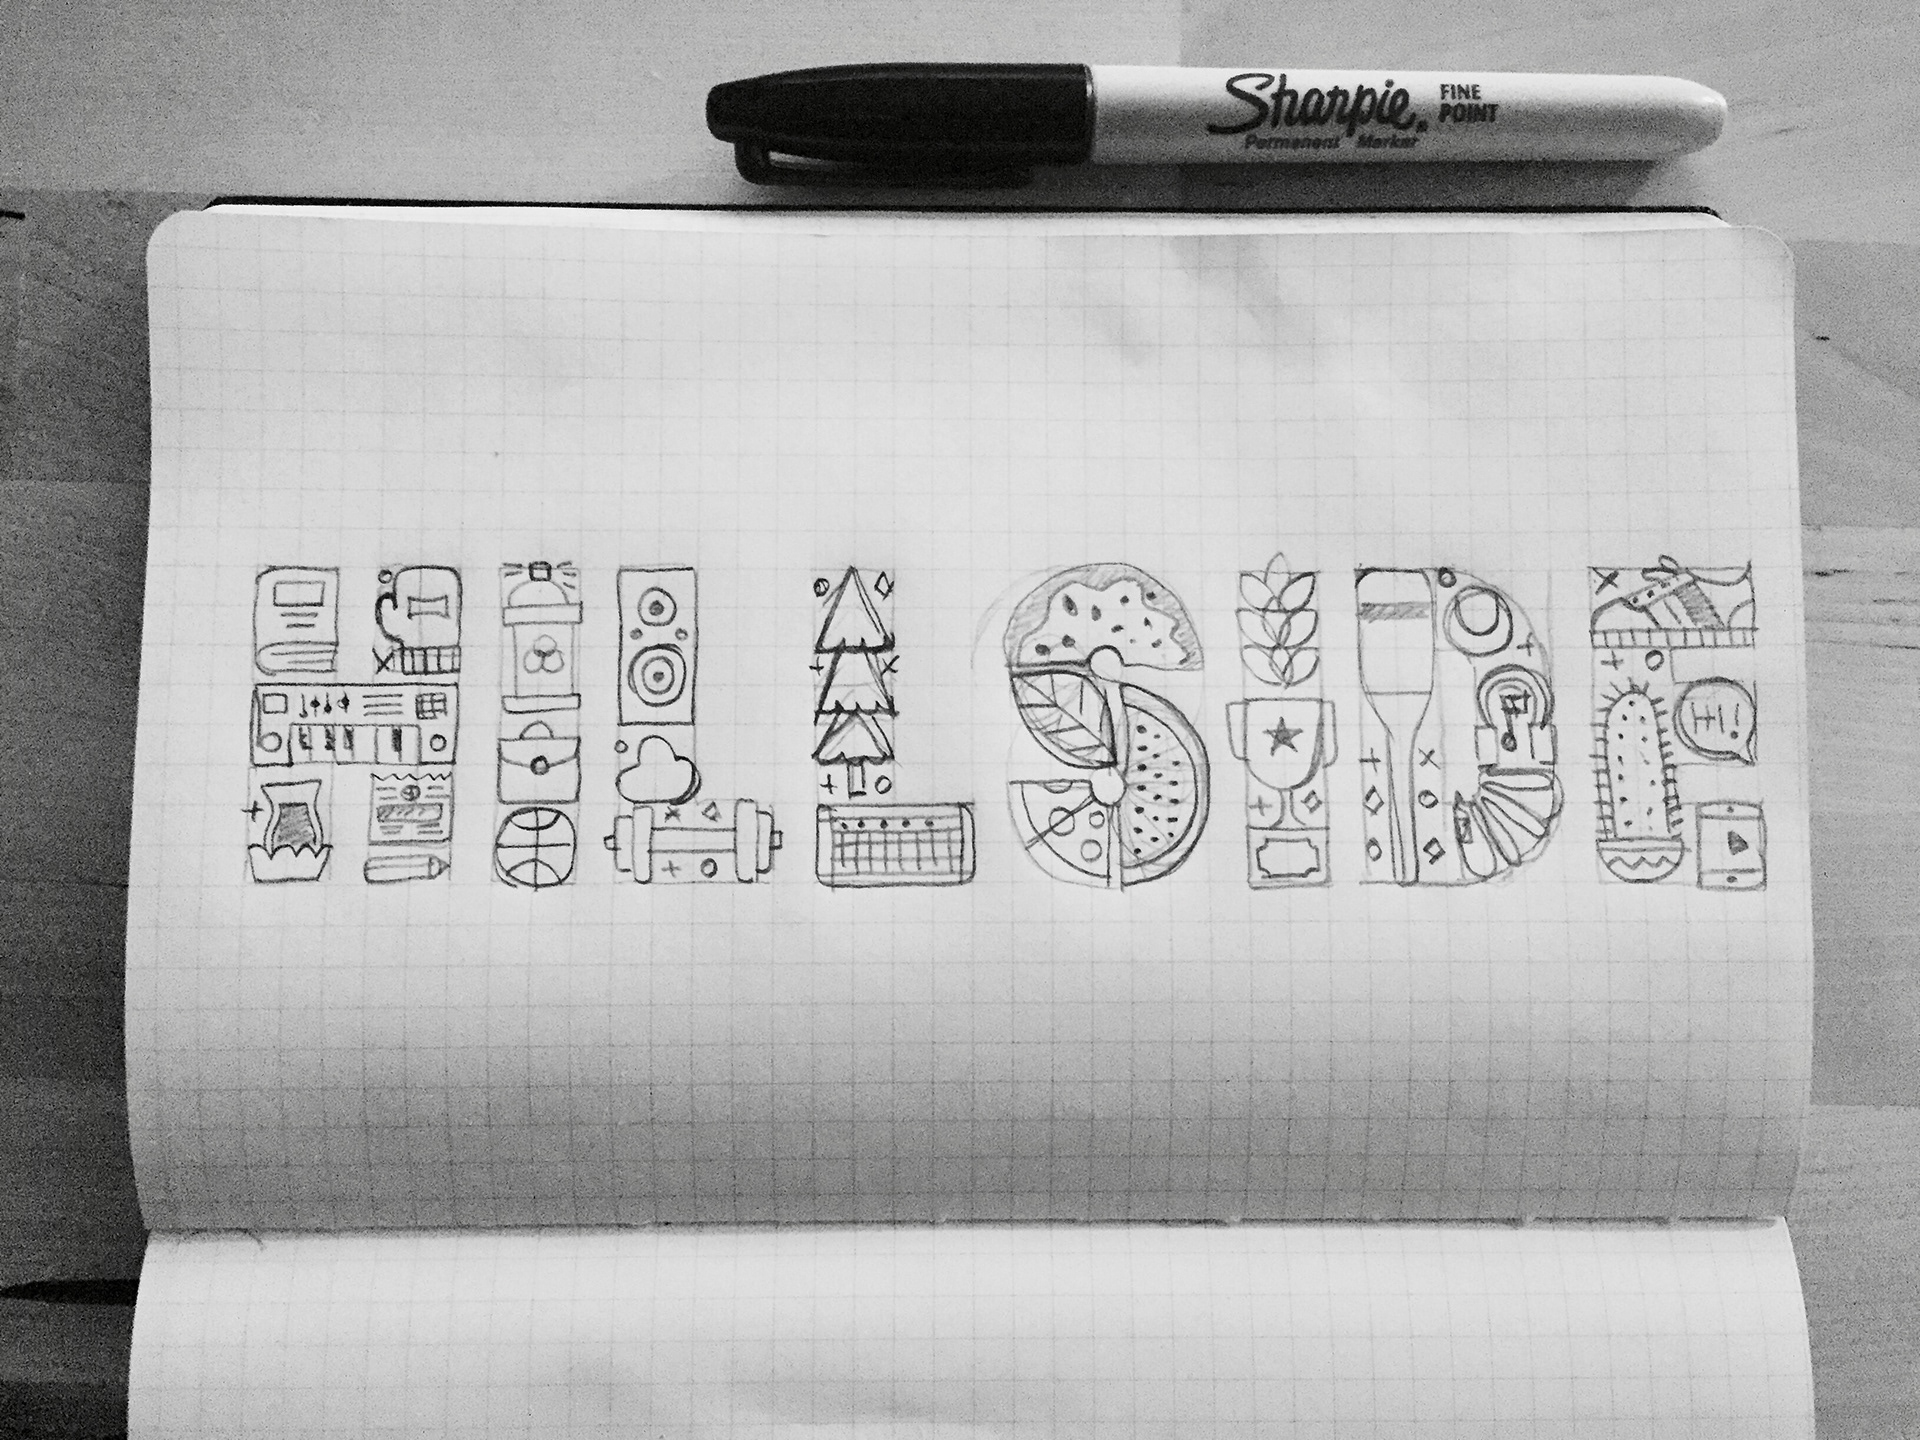 Sharpie. FINE
POINT
Permanent Marker
HILLSIDE